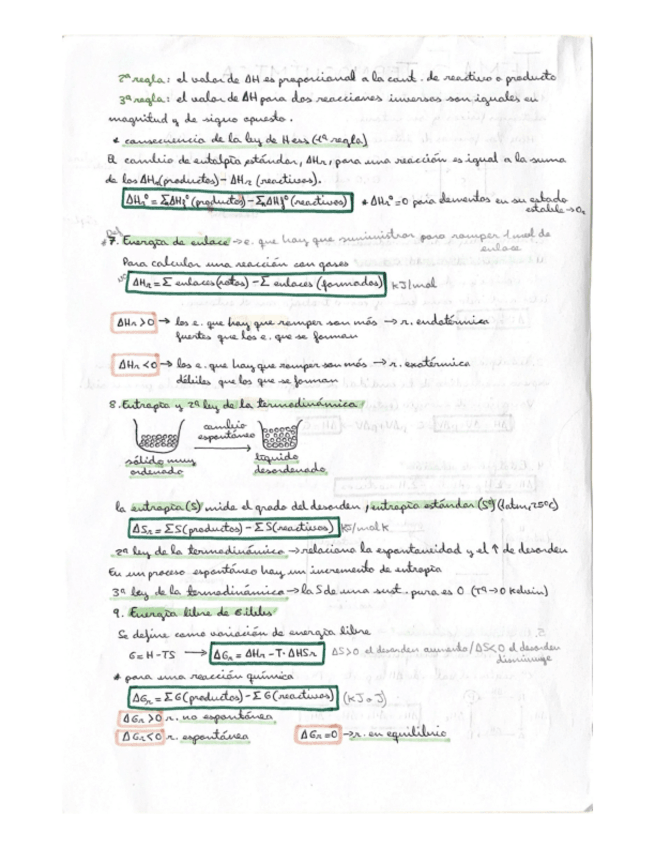 2ª regla: el valor de ΔH es proporcional a la cant. de reactivo o producto
3ª regla: el valor de ΔH para dos reacciones inversas son iguales en
magnitud y de signo opuesto.
* consecuencia de la ley de Hess (1ª regla)
El cambio de entalpía estándar, ΔHr, para una reacción es igual a la suma
de los ΔHr(productos) - ΔHr (reactivos).
ΔHr° = ΣΔHf° (productos) - ΣΔHf° (reactivos) * ΔHr° = 0 para elementos en su estado
estable → O₂
7. Energía de enlace → e. que hay que suministrar para romper 1 mol de
enlace
Para calcular una reacción con gases
ΔHr = Σ enlaces (rotos) - Σ enlaces (formados) kJ/mol
ΔHr > 0 → los e. que hay que romper son más → r. endotérmica
fuertes que los e. que se forman
ΔHr < 0 → los e. que hay que romper son más → r. exotérmica
débiles que los que se forman
8. Entropía y 2ª ley de la termodinámica
cambio
espontáneo
sólido muy
ordenado
líquido
desordenado
la entropía (S) mide el grado del desorden, entropía estándar (S°) (1atm, 25°C)
ΔSr = ΣS (productos) - ΣS (reactivos) kJ/mol K
2ª ley de la termodinámica → relaciona la espontaneidad y el ↑ de desorden
En un proceso espontáneo hay un incremento de entropía
3ª ley de la termodinámica → la S de una sust. pura es 0 (Tª → 0 Kelvin)
9. Energía libre de Gibbs
Se define como variación de energía libre
G = H - TS → ΔGr = ΔHr - T · ΔHSr ΔS>0 el desorden aumenta / ΔS<0 el desorden
disminuye
* para una reacción química
ΔGr = ΣG (productos) - ΣG (reactivos) (kJ o J)
ΔGr > 0 r. no espontánea
ΔGr < 0 r. espontánea ΔGr = 0 → r. en equilibrio